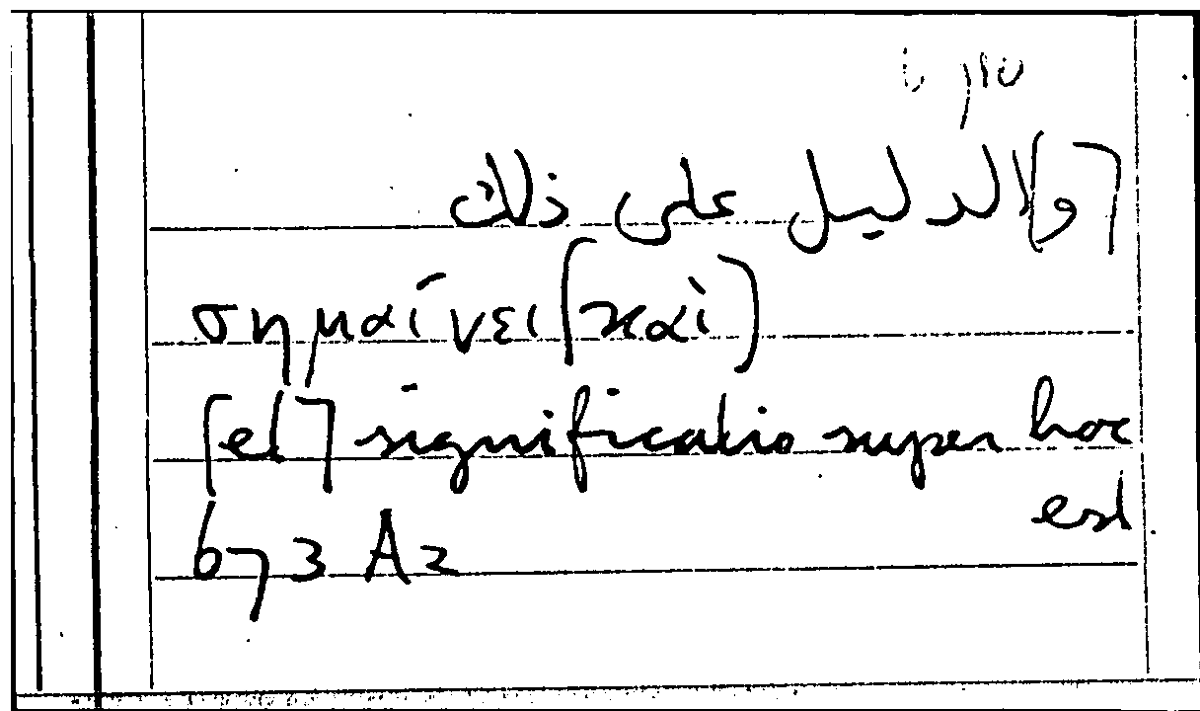 [و] الدليل على ذلك
σημαίνει (καὶ)
[et] significatio super hoc
est
673 A2